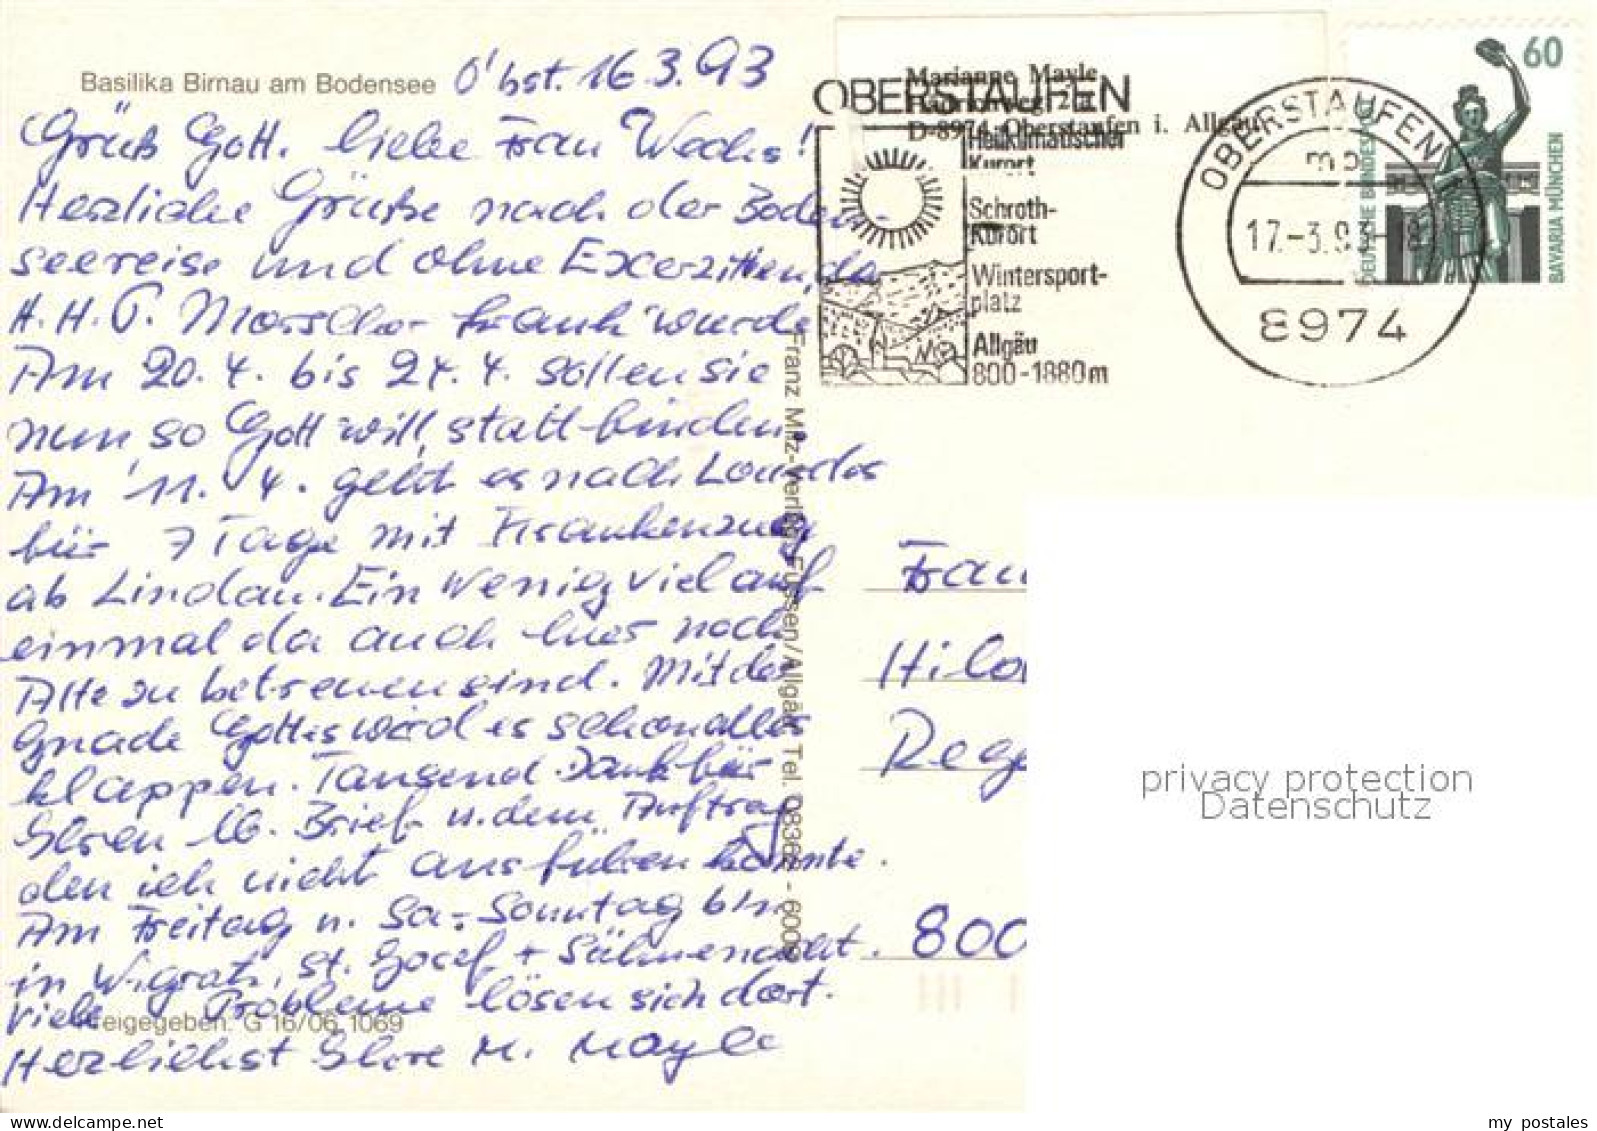 Basilika Birnau am Bodensee
O'bst. 16.3.93
Grüß Gott. liebe Frau Wachs!
Herzliche Grüße nach der Boden-
seereise und ohne Exerzitien, da
H. H. P. krank wurde
Am 20. 4. bis 24. 4. sollen sie
nun, so Gott will, stattfinden,
Am 11. 4. geht es nach Lourdes
für 7 Tage mit Krankenzug
ab Lindau. Ein wenig viel auf
einmal da auch hier noch
Alte zu betreuen sind. Mit der
Gnade Gottes wird es schon alles
klappen. Tausend Dank für
Ihren lb. Brief u. dem Auftrag
den ich nicht ausführen konnte.
Am Freitag u. Sa. - Sonntag bin
in Wigratz, St. Josef + Sühnenacht.
Viele Probleme lösen sich dort.
Herzlichst Ihre M. Mayle
Freigegeben: G 16/06 1069
Franz Milz-Verlag Füssen/Allgäu Tel. 08362 - 600
Marianne Mayle
D-8974 Oberstaufen i. Allgäu
OBERSTAUFEN
Heilklimatischer
Kurort
Schroth-
Kurort
Wintersport-
platz
Allgäu
800-1880m
OBERSTAUFEN
mb
17.-3.93-18
8974
60
DEUTSCHE BUNDESPOST
BAVARIA MÜNCHEN
Frau
Hild
Rege
800
privacy protection
Datenschutz
delcampe.net
my_postales